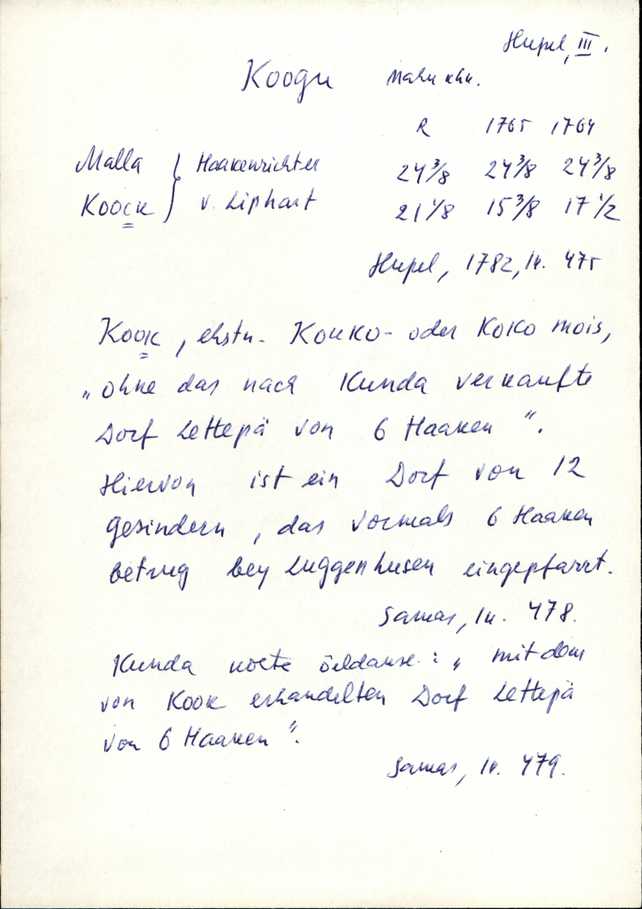 Hupel, III.
Koogu Mahu khk.
R 1765 1764
Malla { Haakenrichter 24 3/8 24 3/8 24 3/8
Koock } v. Liphart 21 1/8 15 3/8 17 1/2
Hupel, 1782, lk. 475
Kook, ehstn. Kouko- oder Koko mois,
"ohne das nach Kunda verkaufte
Dorf Lettepä von 6 Haaken".
Hiervon ist ein Dorf von 12
Gesindern, das vormals 6 Haaken
betrug bey Luggenhusen eingepfarrt.
Samas, lk. 478.
Kunda kohta öeldakse: "mit dem
von Kook erhandelten Dorf Lettepä
von 6 Haaken".
Samas, lk. 479.